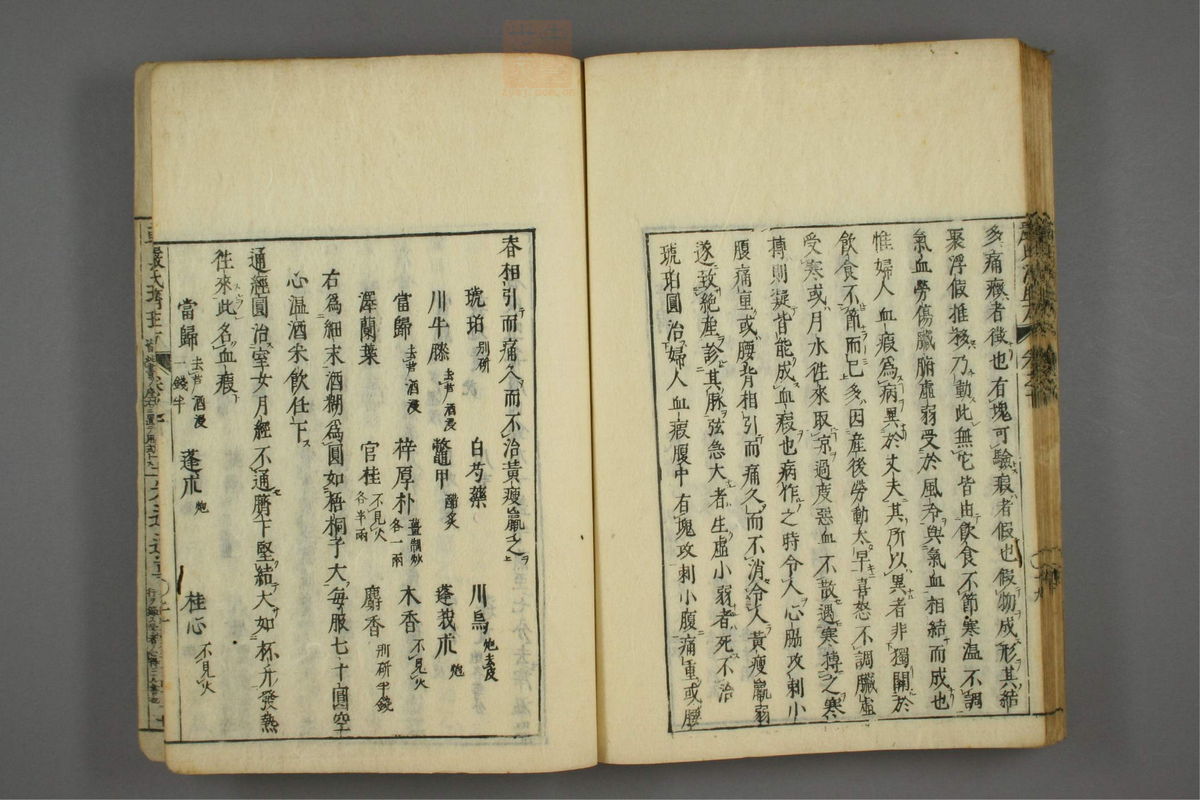 多痛癥者徵也有塊可驗瘕者假也假物成形其結
聚浮假推移乃動此無它皆由飲食不節寒温不調
氣血勞傷臟腑虛弱受於風冷與氣血相結而成也
惟婦人血瘕爲病異於丈夫其所以異者非獨關於
飲食不節而已多因產後勞動太早喜怒不調臟虛
受寒或月水徃來取凉過度惡血不散遇寒搏之寒
搏則凝皆能成血瘕也病作之時令人心脇攻刺小
腹痛重或腰背相引而痛久而不消令人黃瘦羸弱
遂致絶產診其脉弦急大者生虛小弱者死不治
琥珀圓治婦人血瘕腹中有塊攻刺小腹痛重或腰
脊相引而痛久而不治黃瘦羸乏
琥珀別研 白芍藥 川烏炮去皮
川牛膝去芦酒浸 鼈甲醋炙 蓬莪朮炮
當歸去芦酒浸 梓厚朴薑制炒各一兩 木香不見火
澤蘭葉 官桂不見火各半兩 麝香別研半錢
右爲細末酒糊爲圓如梧桐子大每服七十圓空
心温酒米飲任下
通經圓治室女月經不通臍下堅結大如杯升發熱
徃來此名血瘕
當歸去芦酒浸一錢半 蓬朮炮 桂心不見火